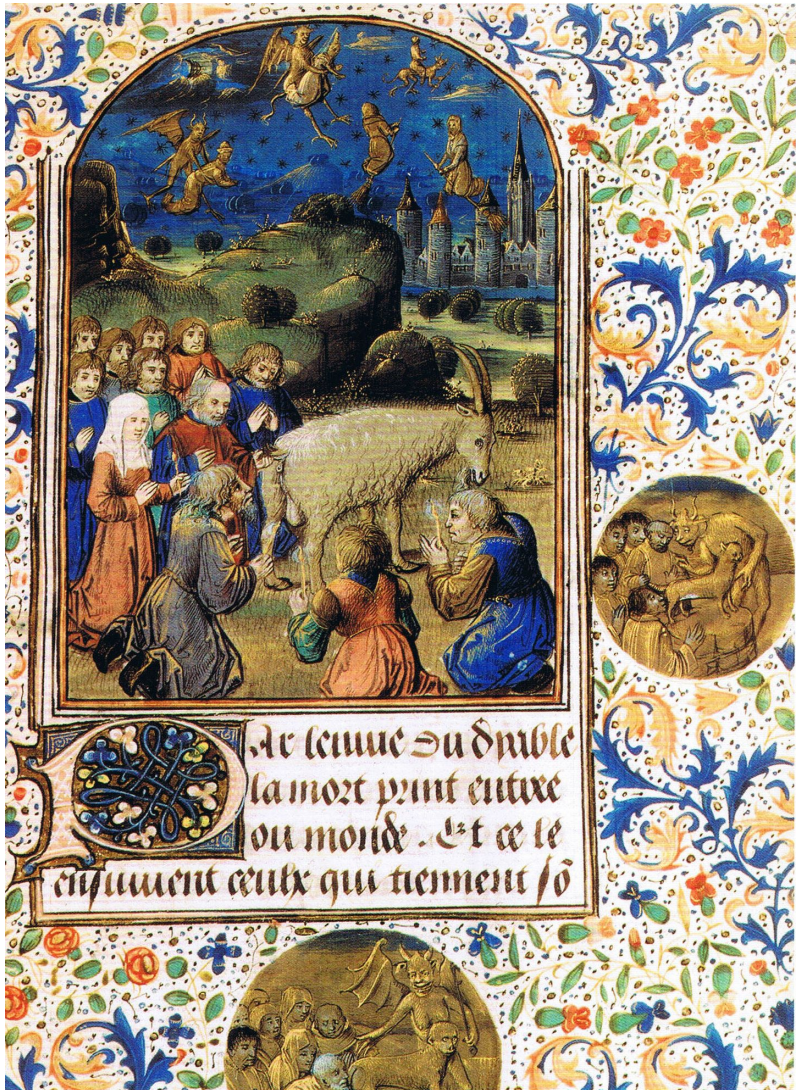 Par lenuie du dyable
la mort print entree
ou monde. Et ce le
ensuiuent ceulx qui tiennent sõ